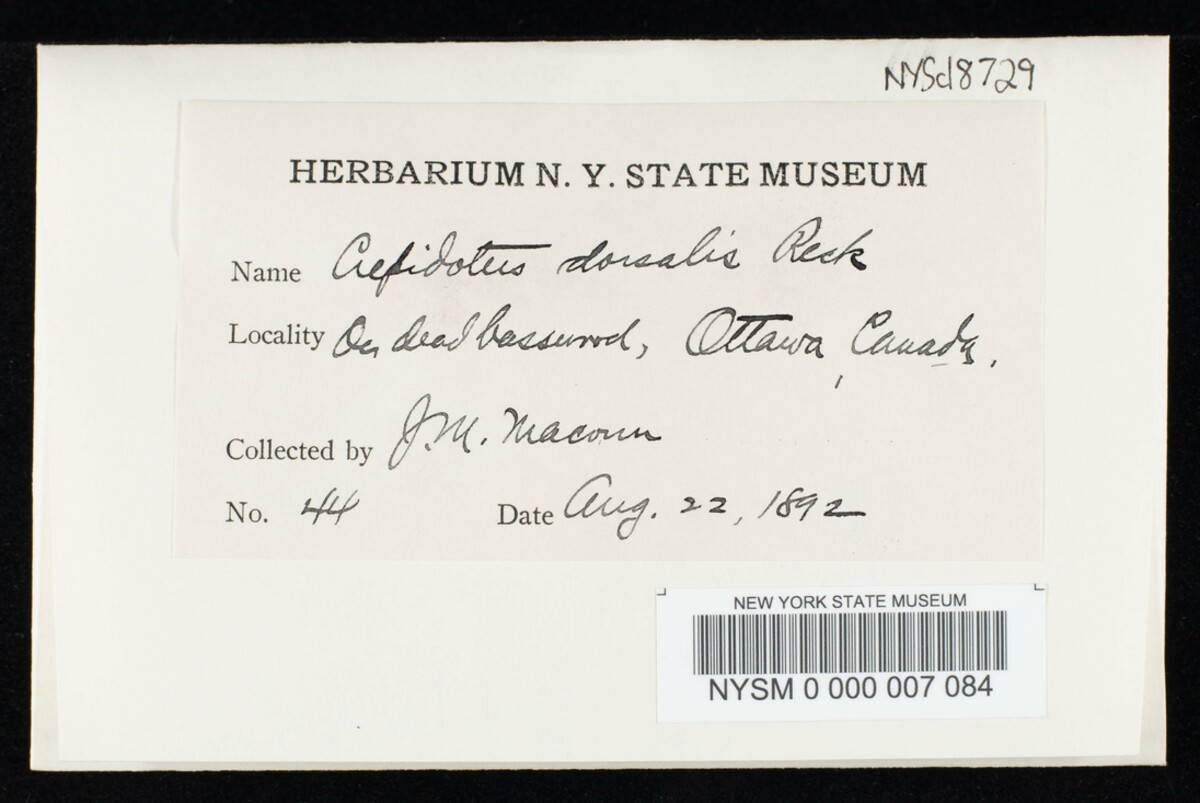 NYSd8729
HERBARIUM N. Y. STATE MUSEUM
Name Crepidotus dorsalis Peck
Locality On dead basswood, Ottawa, Canada.
Collected by J. M. Macoun
No. 44 Date Aug. 22, 1892
NEW YORK STATE MUSEUM
NYSM 0 000 007 084